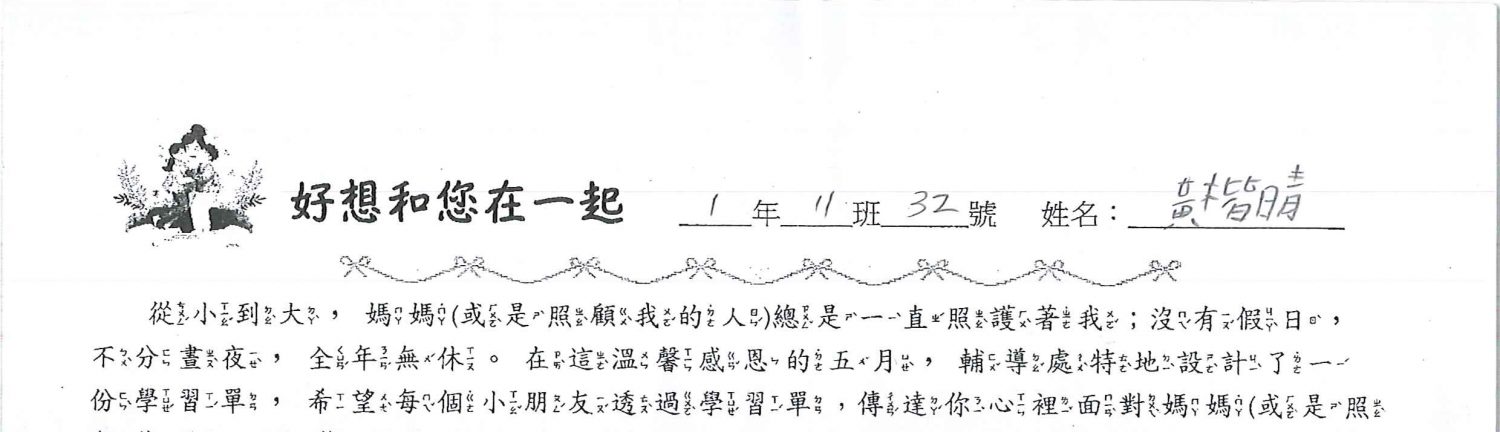 好想和您在一起 1年 11班 32號 姓名：黃楷晴
從小到大，媽媽(或是照顧我的人)總是一直照護著我；沒有假日，
不分晝夜，全年無休。在這溫馨感恩的五月，輔導處特地設計了一
份學習單，希望每個小朋友透過學習單，傳達你心裡面對媽媽(或是照